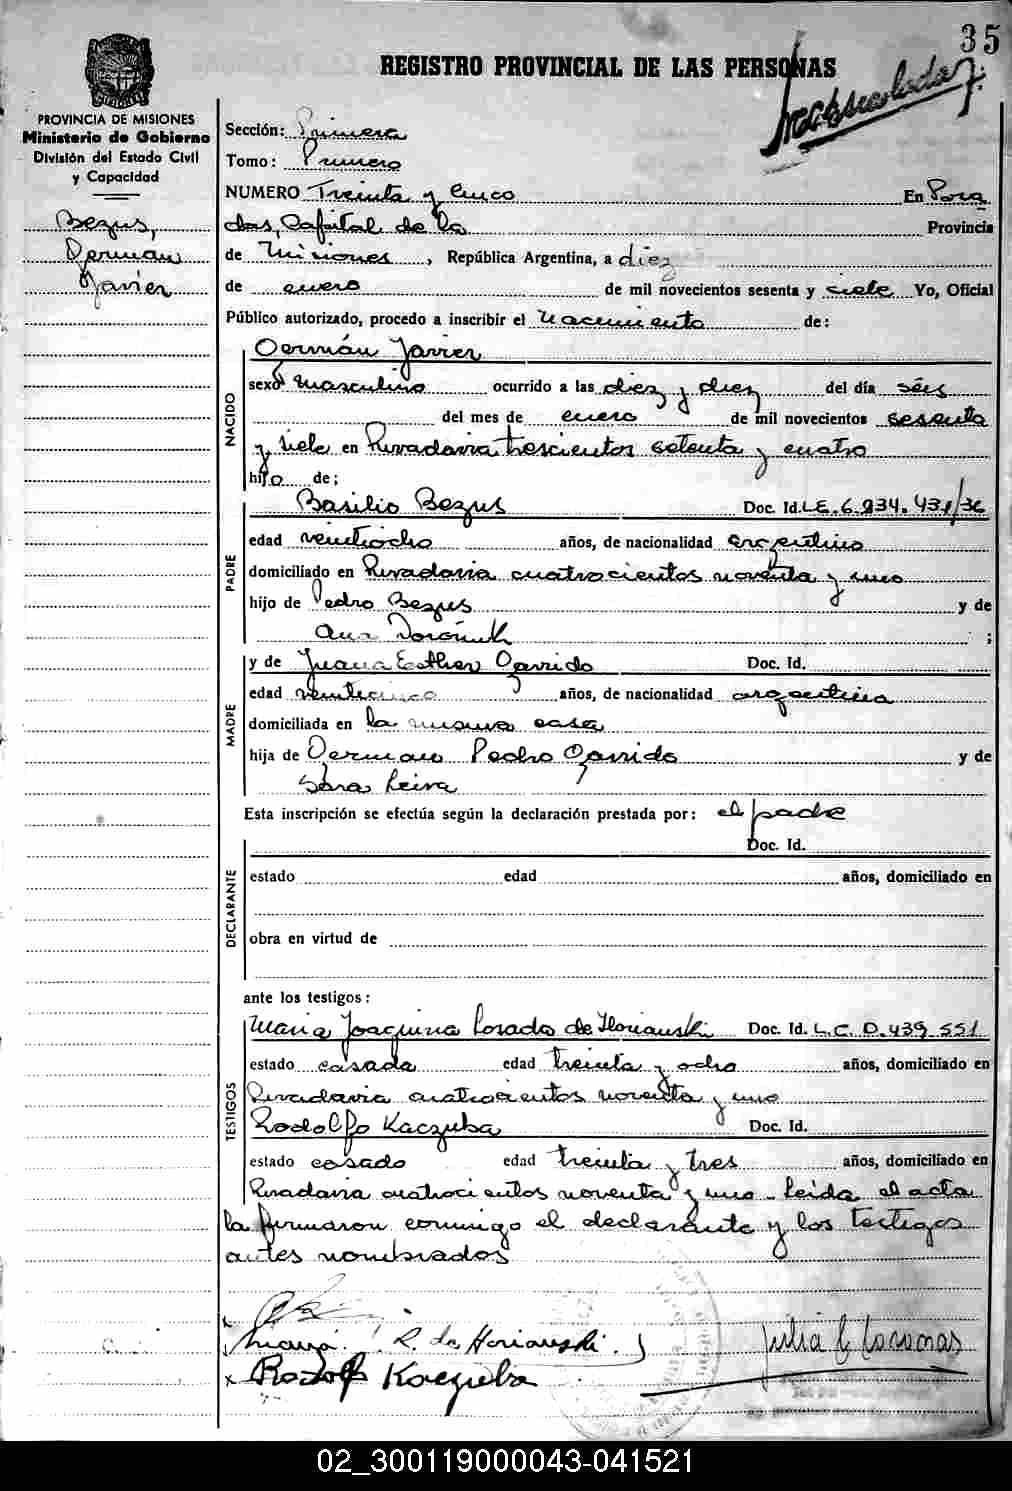 35
REGISTRO PROVINCIAL DE LAS PERSONAS
PROVINCIA DE MISIONES
Ministerio de Gobierno
División del Estado Civil
y Capacidad
Bezus,
German
Javier
Sección: Primera
Tomo: Primero
NUMERO Treinta y Cinco En Posa
das, Capital de la Provincia
de Misiones, República Argentina, a diez
de enero de mil novecientos sesenta y siete Yo, Oficial
Público autorizado, procedo a inscribir el nacimiento de:
NACIDO
Germán Javier
sexo masculino ocurrido a las diez y diez del día séis
del mes de enero de mil novecientos sesenta
y siete en Rivadavia trescientos setenta y cuatro
hijo de;
PADRE
Basilio Bezus Doc. Id. LE. 6.834.431/36
edad veintiocho años, de nacionalidad argentino
domiciliado en Rivadavia cuatrocientos noventa y uno
hijo de Pedro Bezus y de
Ana ;
MADRE
y de Juana Esther Garrido Doc. Id.
edad veinticinco años, de nacionalidad argentina
domiciliada en la misma casa
hija de German Pedro Garrido y de
Sara Leiva
Esta inscripción se efectúa según la declaración prestada por: el padre
DECLARANTE
Doc. Id.
estado edad años, domiciliado en
obra en virtud de
ante los testigos:
TESTIGOS
Maria Joaquina Posada de Horianski Doc. Id. L.C. 0.439.551
estado casada edad treinta y ocho años, domiciliado en
Rivadavia cuatrocientos noventa y uno
Rodolfo Kaczuba Doc. Id.
estado casado edad treinta y tres años, domiciliado en
Rivadavia cuatrocientos noventa y uno - Leida el acta
la firmaron conmigo el declarante y los testigos
antes nombrados
R. de Horianski
Rodolfo Kaczuba
02_300119000043-041521